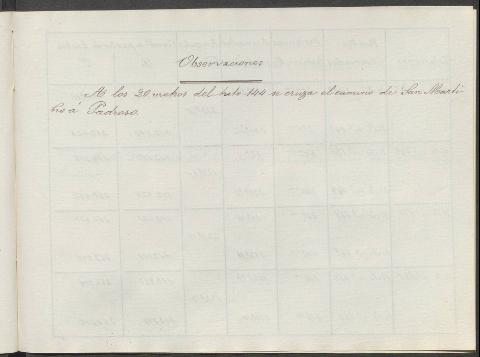 Observaciones
A los 20 metros del hito 144 se cruza el camino de San Marti
ño á Padroso.